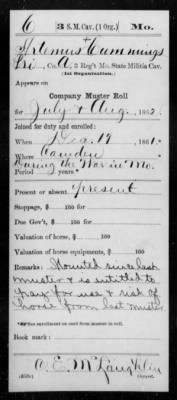 C | 3 S.M. Cav. (1 Org.) | Mo.
Artemus Cummings
Pri., Co. A, 3 Reg't Mo. State Militia Cav.
(1st Organization.)
Appears on
Company Muster Roll
for July & Aug., 1862.
Joined for duty and enrolled:
When Dec. 19, 1861.
Where Camden
Period During the War in Mo. years.*
Present or absent Present
Stoppage, $ 100 for
Due Gov't, $ 100 for
Valuation of horse, $ 100
Valuation of horse equipments, $ 100
Remarks: Mounted since last
muster & is entitled to
pay for use & risk of
horse from last muster
*See enrollment on card from muster-in roll.
Book mark:
A. E. McLaughlin
(858b) Copyist.